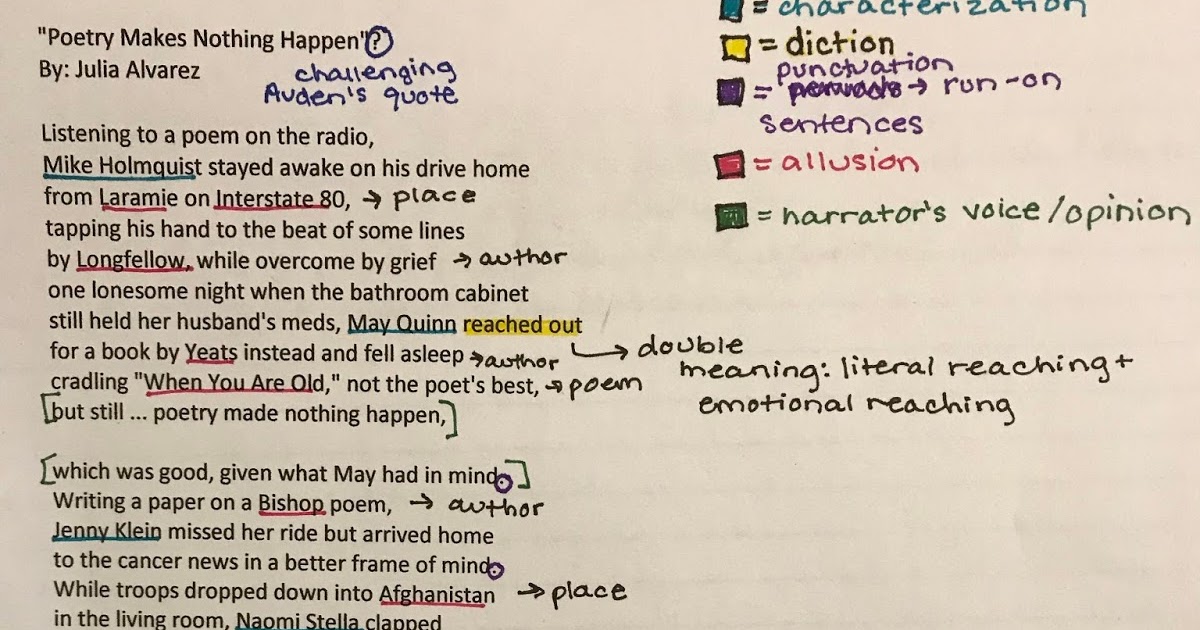 = characterization
"Poetry Makes Nothing Happen"?
= diction
By: Julia Alvarez
challenging
Auden's quote
punctuation
= → run-on
sentences
= allusion
= narrator's voice/opinion
Listening to a poem on the radio,
Mike Holmquist stayed awake on his drive home
from Laramie on Interstate 80, → place
tapping his hand to the beat of some lines
by Longfellow, while overcome by grief → author
one lonesome night when the bathroom cabinet
still held her husband's meds, May Quinn reached out
for a book by Yeats instead and fell asleep → author
→ double
meaning: literal reaching +
emotional reaching
cradling "When You Are Old," not the poet's best, → poem
[but still ... poetry made nothing happen,]
[which was good, given what May had in mind.]
Writing a paper on a Bishop poem, → author
Jenny Klein missed her ride but arrived home
to the cancer news in a better frame of mind.
While troops dropped down into Afghanistan → place
in the living room, Naomi Stella clapped